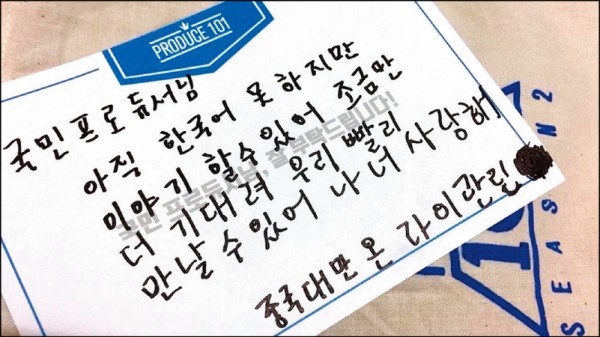 PRODUCE 101
국민 프로듀서님
아직 한국어 못하지만
이야기 할수있어 조금만
더 기대려 우리 빨리
만날 수 있어 나 너 사랑해
중국대만 온 라이관린
국민 프로듀서님, 잘 부탁드립니다!
SEASON 2